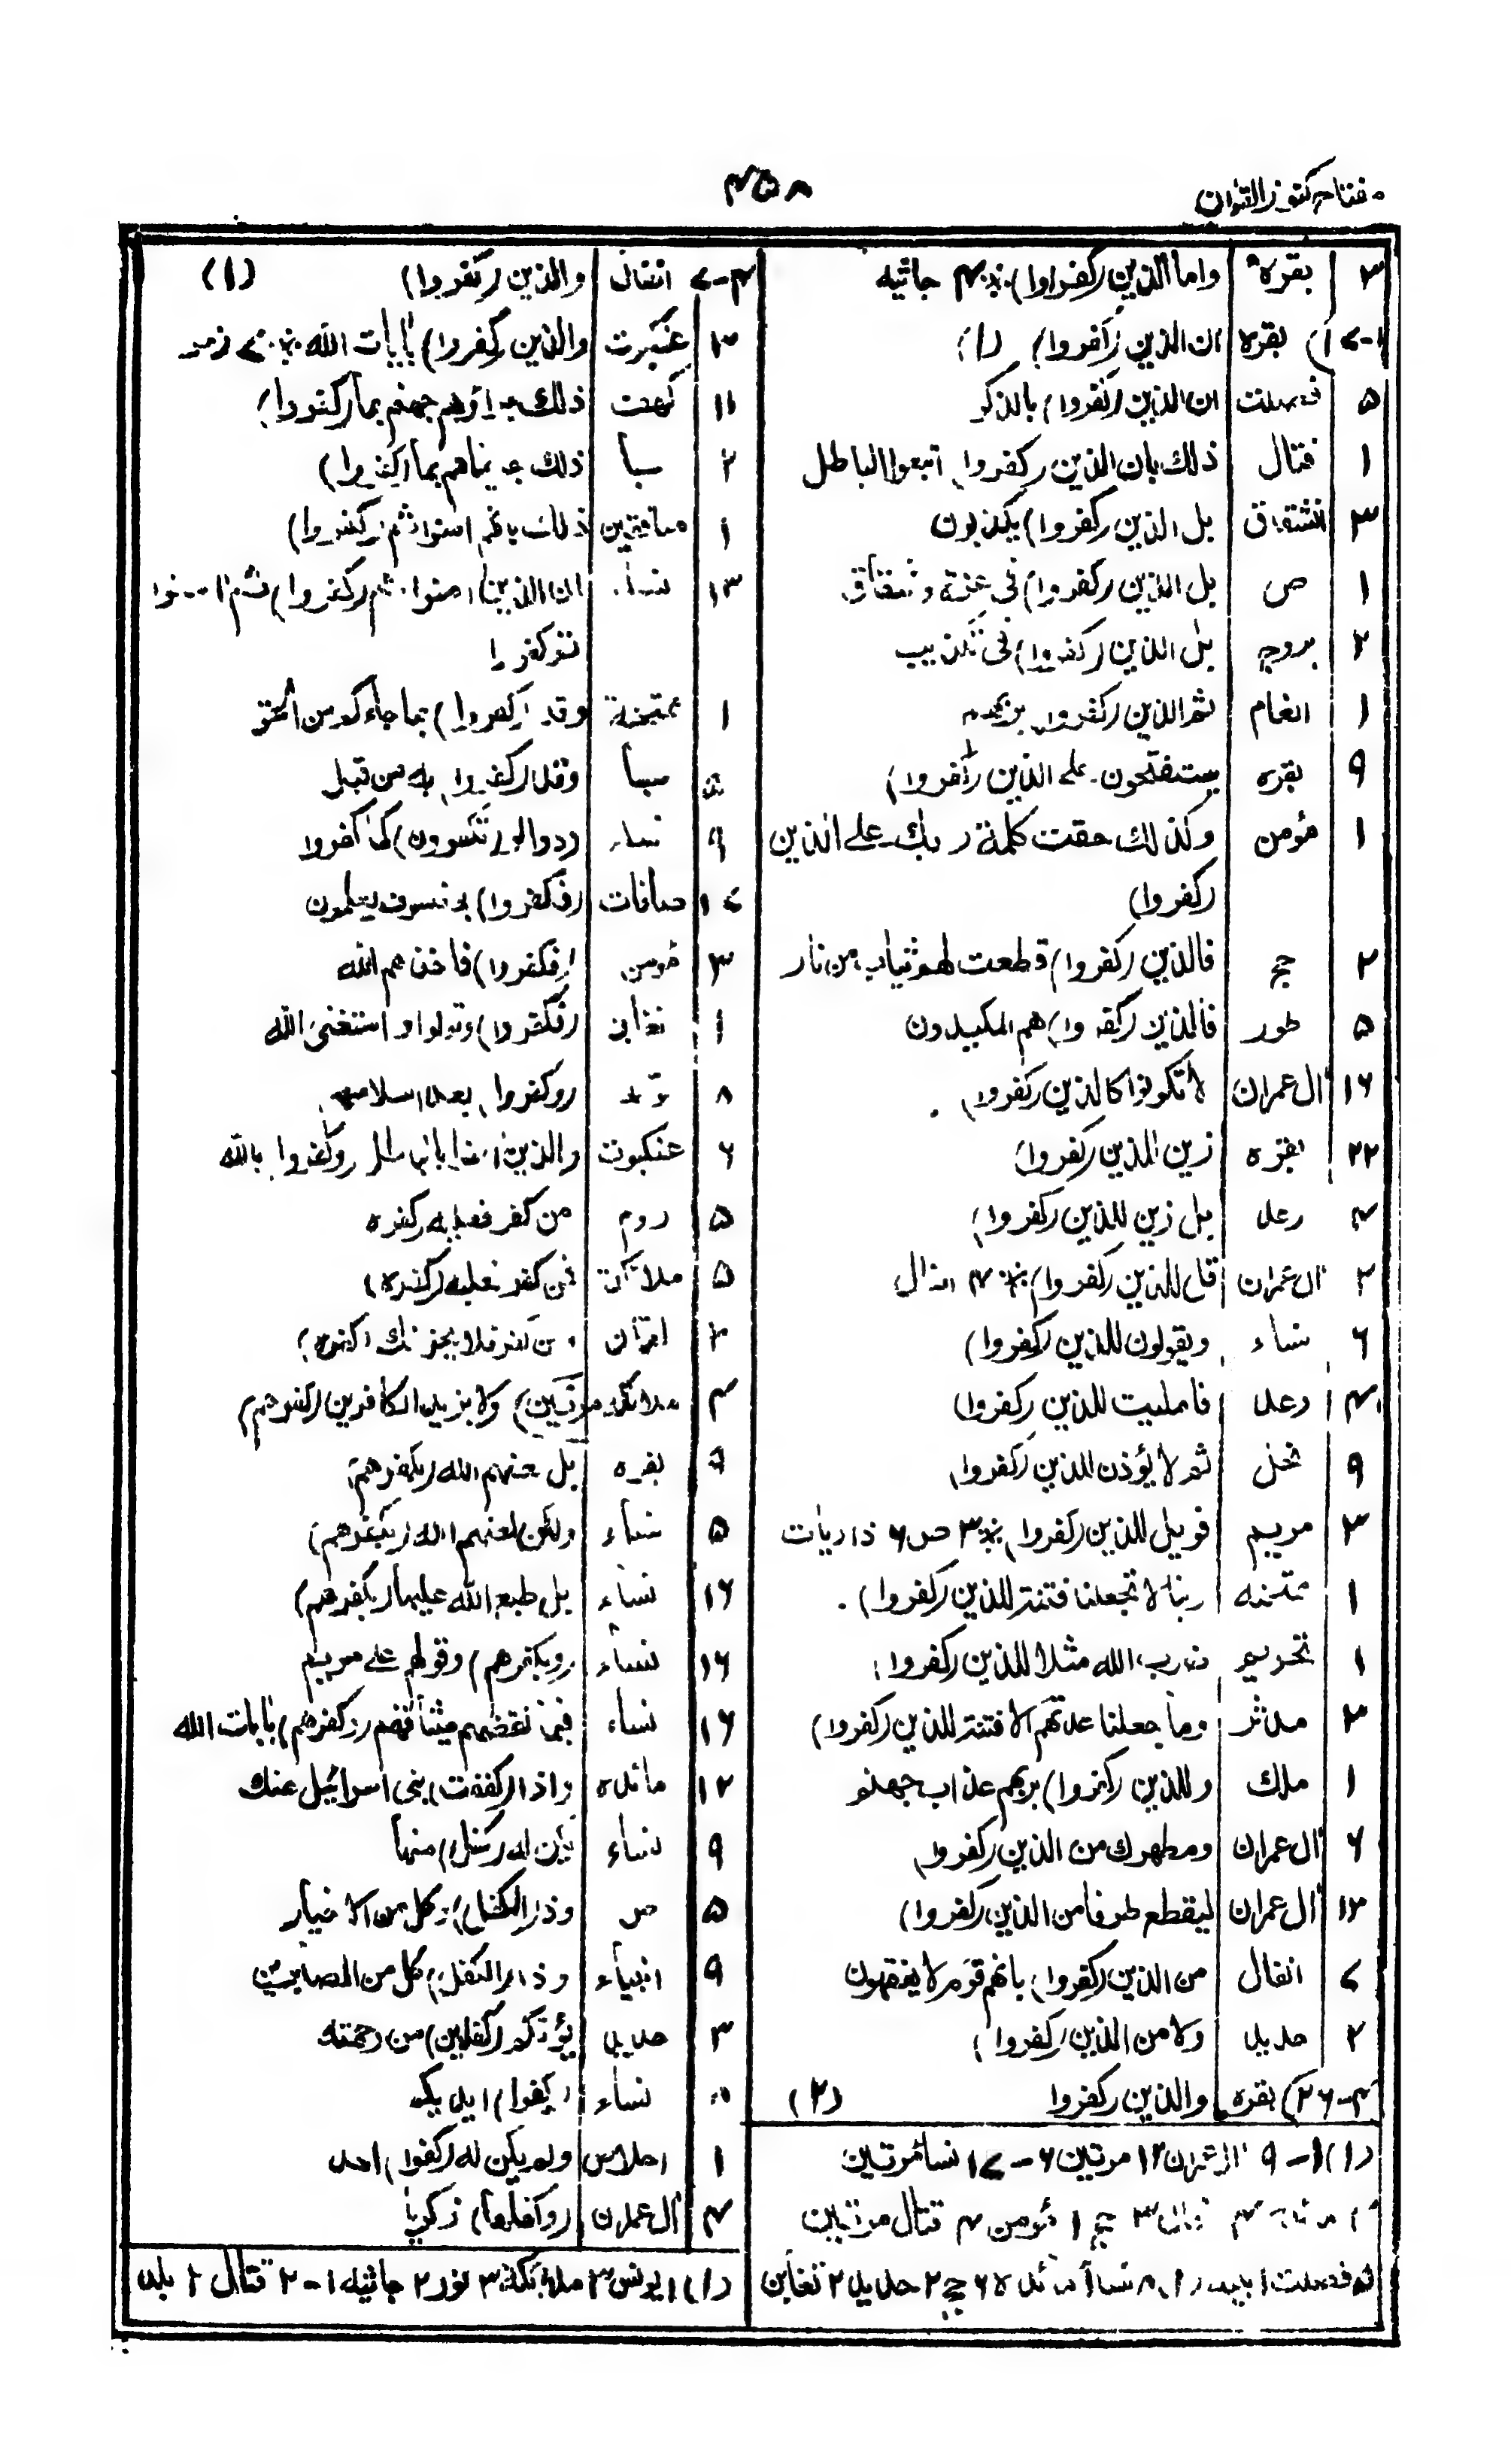 مفتاح كنوز القران
۴۵۸
۳ بقره واما الذين (كفراوا) * ۴ جاثيه
۱-۷۱) بقره ان الذين (كفروا) (۱)
۵ فصلت ان الذين (كفروا) بالذكر
۱ قتال ذلك بان الذين (كفروا) اتبعوا الباطل
۳ انشقاق بل الذين (كفروا) يكذبون
۱ ص بل الذين (كفروا) فى عزة وشقاق
۲ بروج بل الذين (كفروا) فى تكذيب
۱ انعام ثم الذين (كفروا) بربهم
۹ بقره يستفتحون على الذين (كفروا)
۱ مؤمن وكذلك حقت كلمة ربك على الذين
(كفروا)
۲ حج فالذين (كفروا) قطعت لهم ثياب من نار
۵ طور فالذين (كفروا) هم المكيدون
۱۶ ال عمران لا تكونوا كالذين (كفروا)
۲۲ بقره زين للذين (كفروا)
۴ رعد بل زين للذين (كفروا)
۲ ال عمران قل للذين (كفروا) * ۴ انفال
۶ نساء ويقولون للذين (كفروا)
۴ رعد فامليت للذين (كفروا)
۹ نحل ثم لا يؤذن للذين (كفروا)
۳ مريم فويل للذين (كفروا) * ۳ ص ۶ ذاريات
۱ ممتحنه ربنا لا تجعلنا فتنة للذين (كفروا)
۱ تحريم ضرب الله مثلا للذين (كفروا)
۲ مدثر وما جعلنا عدتهم الا فتنة للذين (كفروا)
۱ ملك وللذين (كفروا) بربهم عذاب جهنم
۶ ال عمران ومطهرك من الذين (كفروا)
۱۳ ال عمران ليقطع طرفا من الذين (كفروا)
۷ انفال من الذين (كفروا) بانهم قوم لا يفقهون
۲ حديد ولا من الذين (كفروا)
۴-۲۶) بقره والذين (كفروا (۲)
(۱) ۱-۹ ال عمران ۱۲ مرتين ۶-۱۷ نسا مرتين
۴ ۳ حج ۱ مؤمن ۴ قتال مرتين
۵ فصلت ۱ ۶ حج ۲ حديد ۲ تغابن
۴-۷ انفال والذين (كفروا) (۱)
۳ عنكبوت والذين (كفروا) بايات الله * ۷ زمر
۱۱ كهف ذلك جزاؤهم جهنم بما (كفروا)
۲ سبأ ذلك جزيناهم بما (كفروا)
۱ منافقين ذلك بانهم امنوا ثم (كفروا)
۱۳ نساء ان الذين امنوا ثم (كفروا) ثم امنوا
ثم كفروا
۱ ممتحنة وقد (كفروا) بما جاءكم من الحق
۵ سبأ وقد (كفروا) به من قبل
۹ نساء (ودوالو تكفرون) كما كفروا
۱۷ صافات (فكفروا) به فسوف يعلمون
۳ مؤمن (فكفروا) فاخذهم الله
۱ تغابن (فكفروا) وتولوا واستغنى الله
۸ توبه (وكفروا) بعد اسلامهم
۶ عنكبوت والذين امنوا بالباطل (وكفروا) بالله
۵ روم من كفر فعليه (كفره
۵ ملائكة فمن كفر فعليه (كفره)
۳ لقمان ومن كفر فلا يحزنك (كفره)
۴ ملائكة مرتين) ولا يزيد الكافرين (كفرهم)
۹ بقره بل لعنهم الله (بكفرهم)
۵ نساء ولكن لعنهم الله (بكفرهم)
۱۶ نساء بل طبع الله عليها (بكفرهم)
۱۶ نساء (وبكفرهم) وقولهم على مريم
۱۶ نساء فبما نقضهم ميثاقهم (وكفرهم) بايات الله
۱۲ مائده واذ (كففت) بنى اسرائيل عنك
۹ نساء يكن له (كفل) منها
۵ ص وذا (الكفل) وكل من الاخيار
۹ انبياء وذا (الكفل) كل من الصابرين
۳ حديد يؤتكم (كفلين) من رحمته
نساء (كفوا) ايديكم
۱ اخلاص ولم يكن له (كفوا) احد
۴ ال عمران (وكفلها) زكريا
(۱) ۱ يونس ۳ ملائكة ۳ نور ۲ جاثيه ۱-۲ قتال ۱ بلد